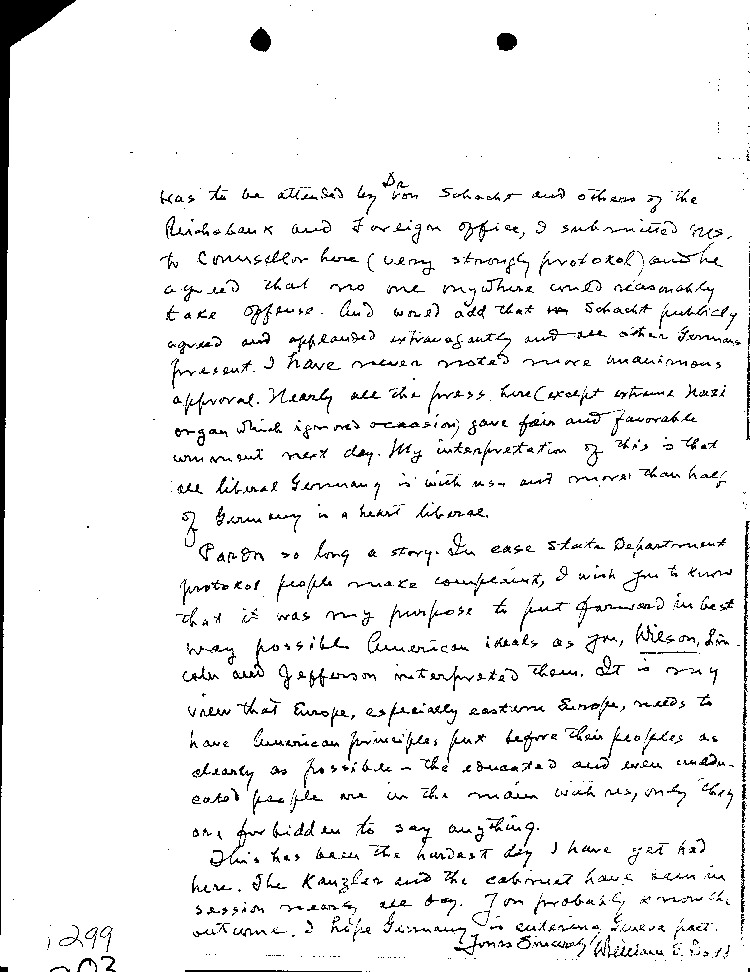 Dr
was to be attended by von Schacht and others of the
Reichsbank and Foreign Office, I submitted ms.
to Counsellor here (very strongly protokol) and he
agreed that no one anywhere could reasonably
take offense. And would add that Schacht publicly
agreed and applauded extravagantly and all other Germans
present. I have never noted more unanimous
approval. Nearly all the press here (except extreme Nazi
organ which ignored occasion) gave fair and favorable
comment next day. My interpretation of this is that
all liberal Germany is with us and more than half
of Germany is a heart liberal.
Pardon so long a story. In case State Department
protokol people make complaint, I wish you to know
that it was my purpose to put forward in best
way possible American ideals as you, Wilson, Lin-
coln and Jefferson interpreted them. It is my
view that Europe, especially eastern Europe, needs to
have American principles put before their peoples as
clearly as possible - the educated and even unedu-
cated people are in the main with us, only they
are forbidden to say anything.
This has been the hardest day I have yet had
here. The Kanzler and the cabinet have been in
session nearly all day. You probably know the
outcome. I hope Germany is entering Geneva pact.
Yours Sincerely, William E. Dodd
1299
203